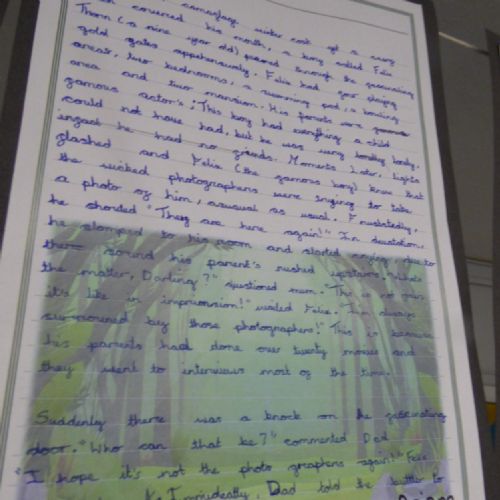 camouflage winter coat
covered his month, a boy called Felix
Thorn (a nine year old) peered through the fascinating
gold gates apprehensively. Felix had four playing
areas, two bedrooms, a swimming pool, a bowling
area and two mansion. His parents were
gamous actor's. This boy had everything a child
could not have had, but he was very lonely,
ingact he had no griends. Moments later, lights
glashed and Felix (the gamous boy) knew that
the wicked photographers were trying to take
a photo of him, asusual as usual. Frustatedly,
he shouted "They are here again!" In
he stomped to his room and started crying due to
there sound his parent's rushed upstairs. "What's
the matter, Darling?" questioned mum. "This is no
it's like in impriosion!" wailed Felix. "I'm always
surrouned by those photographers!" This is because
his parents had done over twenty movies and
they went to interviews most of the time.
Suddenly there was a knock on the gascinating
door. "Who can that be?" commented Dad.
"I hope it's not the photo graphers again!" Felix
Dad told the butler to